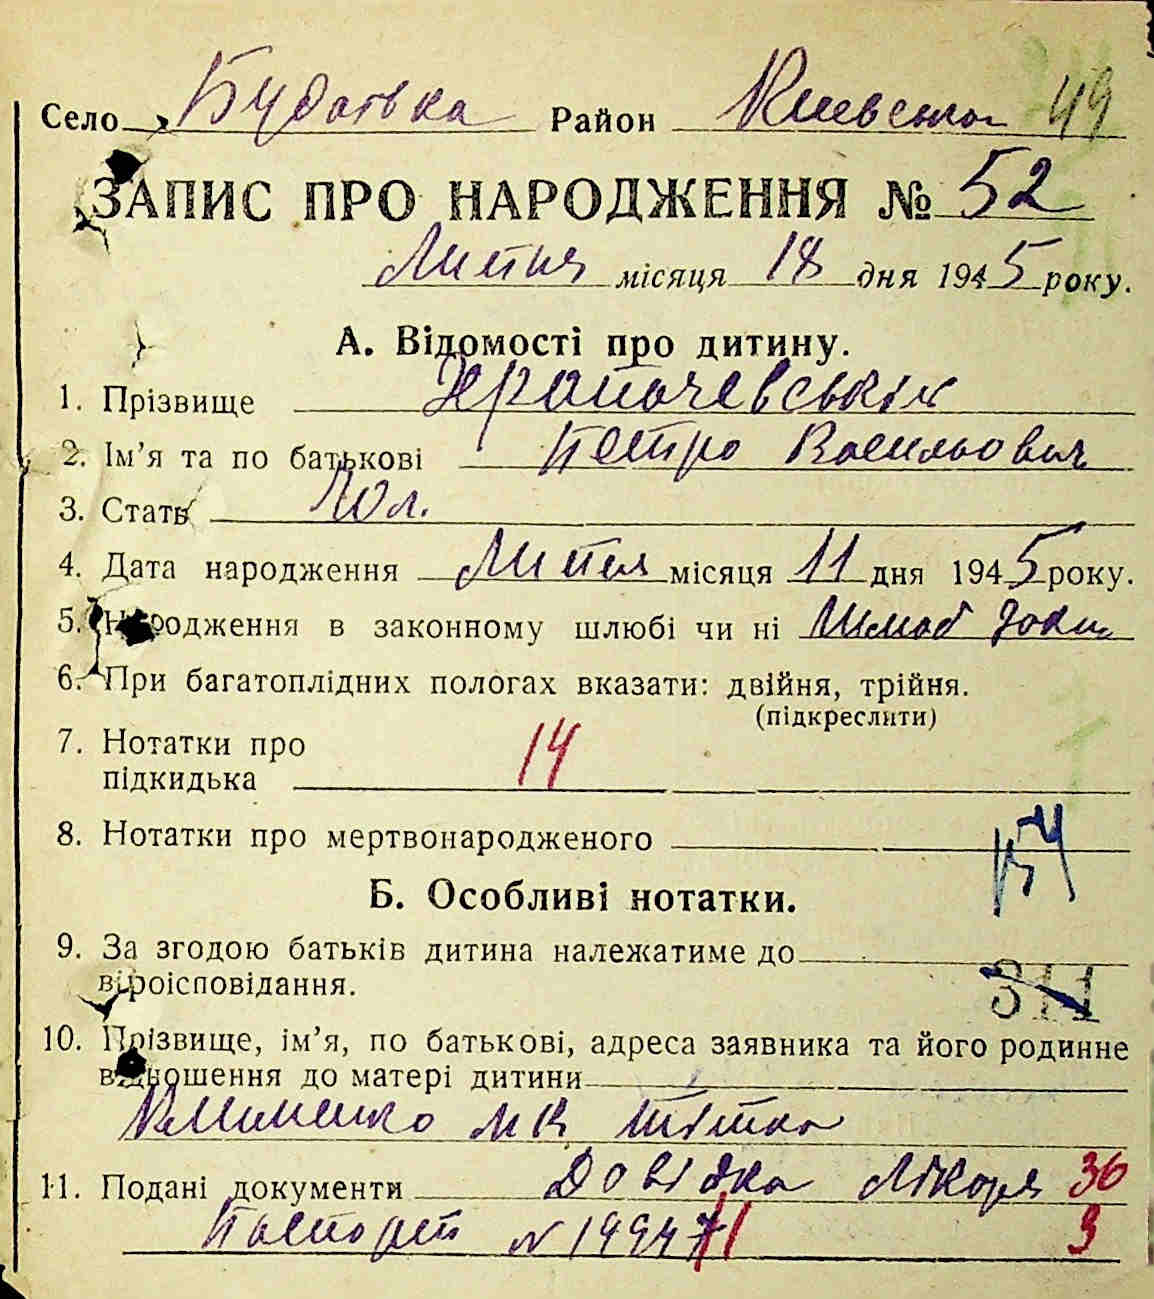 Село Будаївка Район Киевська 49
ЗАПИС ПРО НАРОДЖЕННЯ № 52
Липня місяця 18 дня 1945 року.
А. Відомості про дитину.
1. Прізвище
2. Ім'я та по батькові Петро Васильович
3. Стать Чол.
4. Дата народження Липня місяця 11 дня 1945 року.
5. Народження в законному шлюбі чи ні Шлюб
6. При багатоплідних пологах вказати: двійня, трійня.
(підкреслити)
7. Нотатки про 14
підкидька
8. Нотатки про мертвонародженого
Б. Особливі нотатки.
9. За згодою батьків дитина належатиме до
віроісповідання.
311
10. Прізвище, ім'я, по батькові, адреса заявника та його родинне
відношення до матері дитини
Клименко МК тітка
11. Подані документи Довідка лікаря 36
Паспорт N 19947 11 3